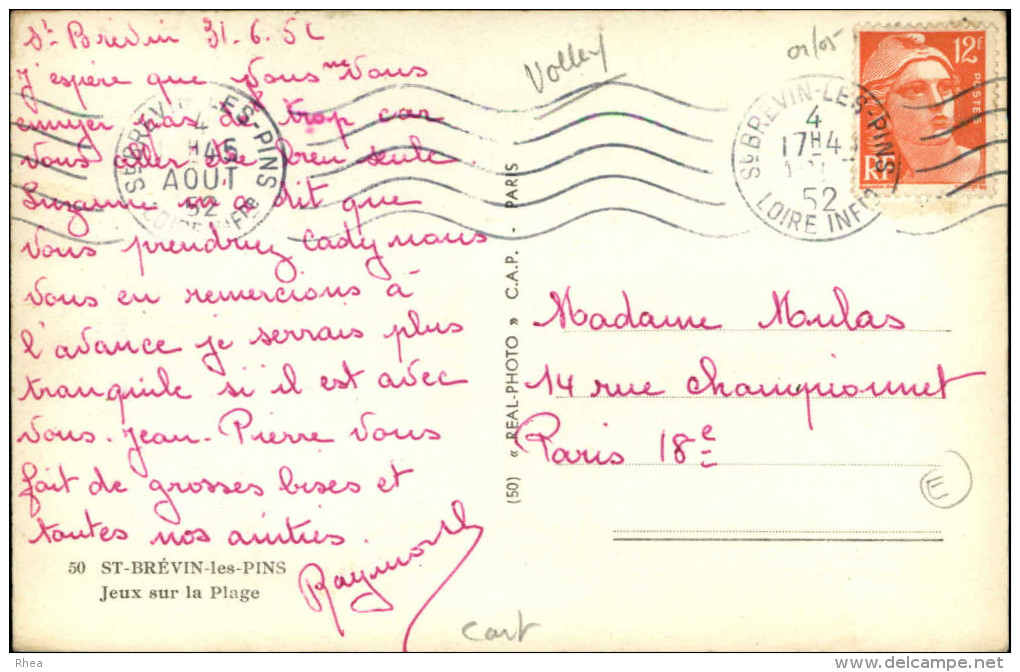 St Brévin 31.6.52
J'espère que vous ne vous
ennuyer pas de trop car
vous aller être bien seule.
Suzanne m'a dit que
vous prendriez Cady nous
vous en remercions à
l'avance je serrais plus
tranquile si il est avec
vous. Jean-Pierre vous
fait de grosses bises et
toutes nos amitiés.
Raymond
50 ST-BRÉVIN-les-PINS
Jeux sur la Plage
Volley
cart
(50) « REAL-PHOTO » C.A.P. - PARIS
St BREVIN-LES-PINS
4
H45
AOUT
52
LOIRE INFRE
St BREVIN-LES-PINS
4
17H4
52
LOIRE INFRE
12F
POSTES
RF
Madame Mulas
14 rue championnet
Paris 18e
E
Rhea
www.delcampe.net